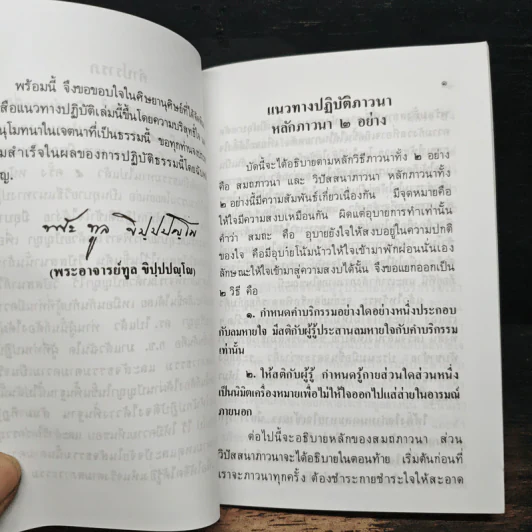 พร้อมนี้ จึงขอขอบใจในศิษยานุศิษย์ที่ได้
สือแนวทางปฏิบัติเล่มนี้ขึ้นโดยความบริสุทธิ์ใจ
นุโมทนาในเจตนาที่เป็นธรรมนี้ ขอทุกท่าน
มสำเร็จในผลของการปฏิบัติธรรมนี้โดย
ญ.
(พระอาจารย์ทูล ขิปฺปปญฺโญ)
๑
แนวทางปฏิบัติภาวนา
หลักภาวนา ๒ อย่าง
บัดนี้จะได้อธิบายตามหลักวิธีภาวนาทั้ง ๒ อย่าง
คือ สมถภาวนา และ วิปัสสนาภาวนา หลักภาวนาทั้ง
๒ อย่างนี้มีความสัมพันธ์เกี่ยวเนื่องกัน มีจุดหมายคือ
ให้ใจมีความสงบเหมือนกัน ผิดแต่อุบายการทำเท่านั้น
คำว่า สมถะ คือ อุบายยังใจให้สงบอยู่ในความปกติ
ของใจ คือมีอุบายโน้มน้าวให้ใจเข้ามาพักผ่อนนั่นเอง
ลักษณะให้ใจเข้ามาสู่ความสงบได้นั้น จึงขอแยกออกเป็น
๒ วิธี คือ
๑. กำหนดคำบริกรรมอย่างใดอย่างหนึ่งประกอบ
กับลมหายใจ มีสติกับผู้รู้ประสานลมหายใจกับคำบริกรรม
เท่านั้น
๒. ให้สติกับผู้รู้ กำหนดรู้กายส่วนใดส่วนหนึ่ง
เป็นนิมิตเครื่องหมายเพื่อไม่ให้ใจออกไปแส่ส่ายในอารมณ์
ภายนอก
ต่อไปนี้จะอธิบายหลักของสมถภาวนา ส่วน
วิปัสสนาภาวนาจะได้อธิบายในตอนท้าย เริ่มต้นก่อนที่
เราจะภาวนาทุกครั้ง ต้องชำระกายชำระใจให้สะอาด